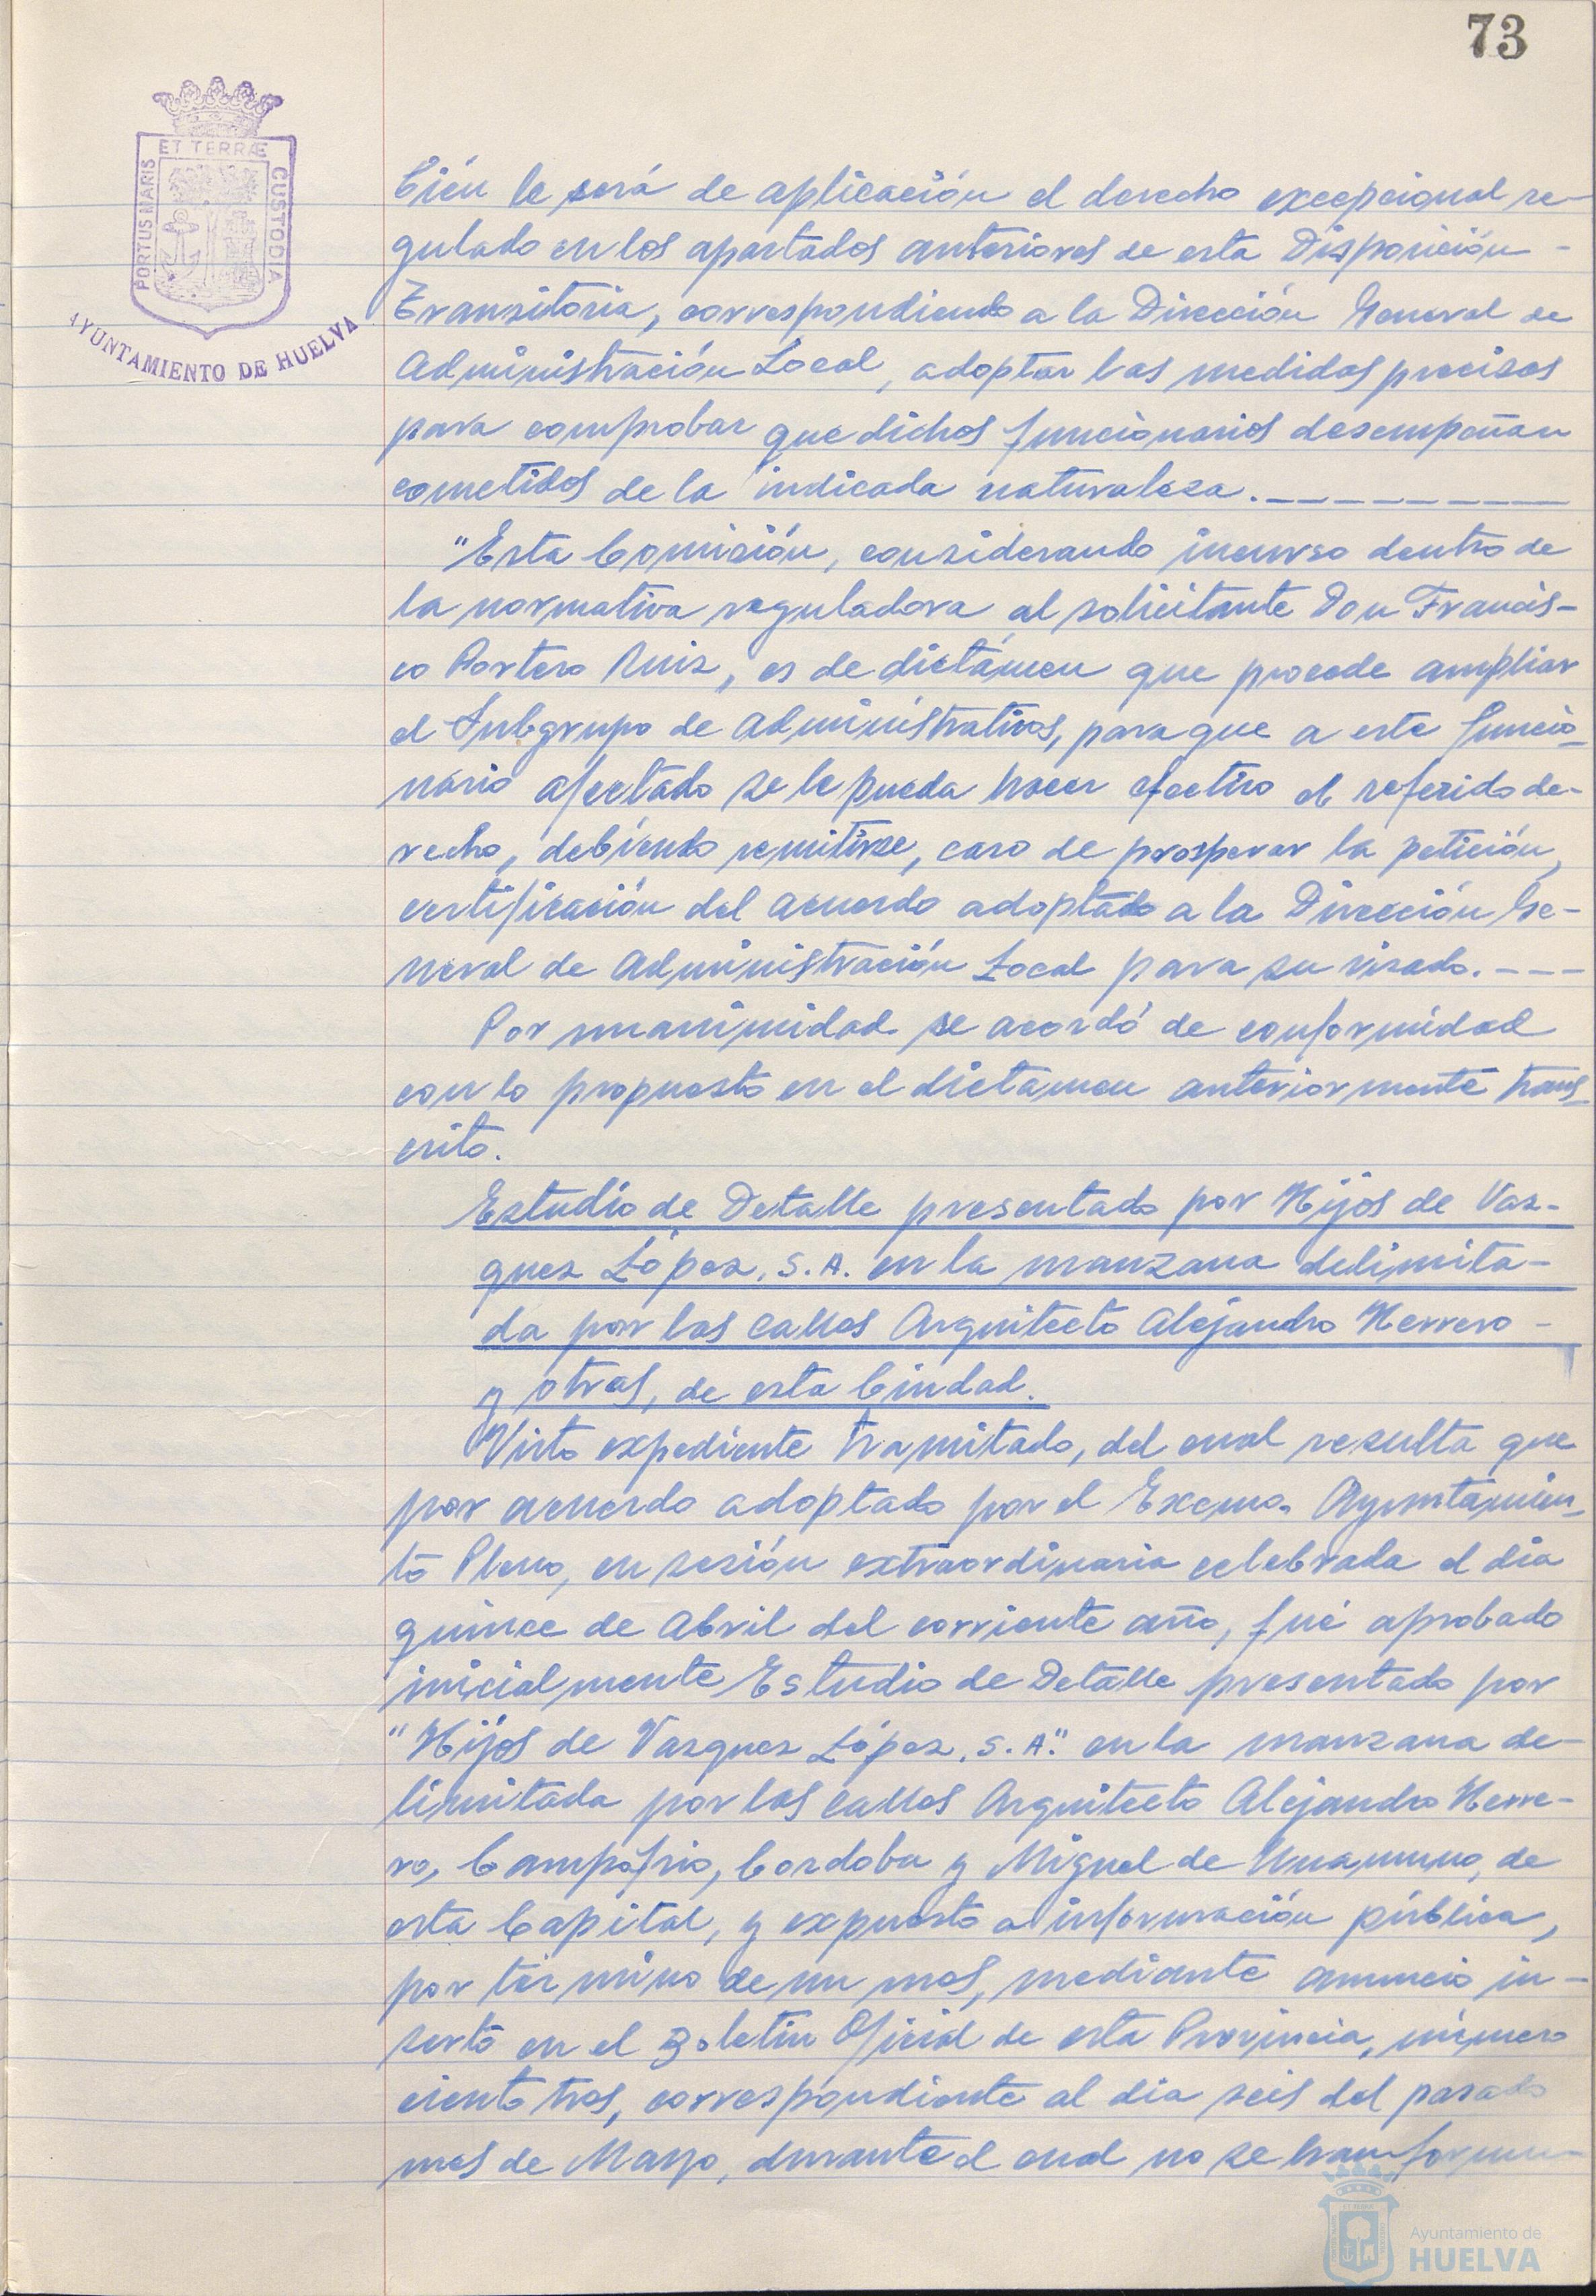 73
ET TERRÆ
PORTUS MARIS
CUSTODIA
AYUNTAMIENTO DE HUELVA
bién le será de aplicación el derecho excepcional re-
gulado en los apartados anteriores de esta Disposición -
Transitoria, correspondiendo a la Dirección General de
Administración Local, adoptar las medidas precisas
para comprobar que dichos funcionarios desempeñan
cometidos de la indicada naturaleza.- - - - - - - -
"Esta Comisión, considerando incurso dentro de
la normativa reguladora al solicitante Don Francis-
co Portero Ruiz, es de dictámen que procede ampliar
el Subgrupo de Administrativos, para que a este funcio-
nario afectado se le pueda hacer efectivo el referido de-
recho, debiendo remitirse, caso de prosperar la petición,
certificación del acuerdo adoptado a la Dirección Ge-
neral de Administración Local para su visado.- - -
Por unanimidad se acordó de conformidad
con lo propuesto en el dictamen anteriormente trans-
crito.
Estudio de Detalle presentado por Hijos de Vaz-
quez López, S.A. en la manzana delimita-
da por las calles Arquitecto Alejandro Herrero -
y otras, de esta Ciudad.
Visto expediente tramitado, del cual resulta que
por acuerdo adoptado por el Excmo. Ayuntamien-
to Pleno, en sesión extraordinaria celebrada el dia
quince de Abril del corriente año, fué aprobado
inicialmente Estudio de Detalle presentado por
"Hijos de Vazquez López, S.A." en la manzana de-
limitada por las calles Arquitecto Alejandro Herre-
ro, Campofrio, Cordoba y Miguel de Unamuno, de
esta Capital, y expuesto a información pública,
por término de un mes, mediante anuncio in-
serto en el Boletin Oficial de esta Provincia, número
ciento tres, correspondiente al dia seis del pasado
mes de Mayo, durante el cual no se han formu-
Ayuntamiento de
HUELVA